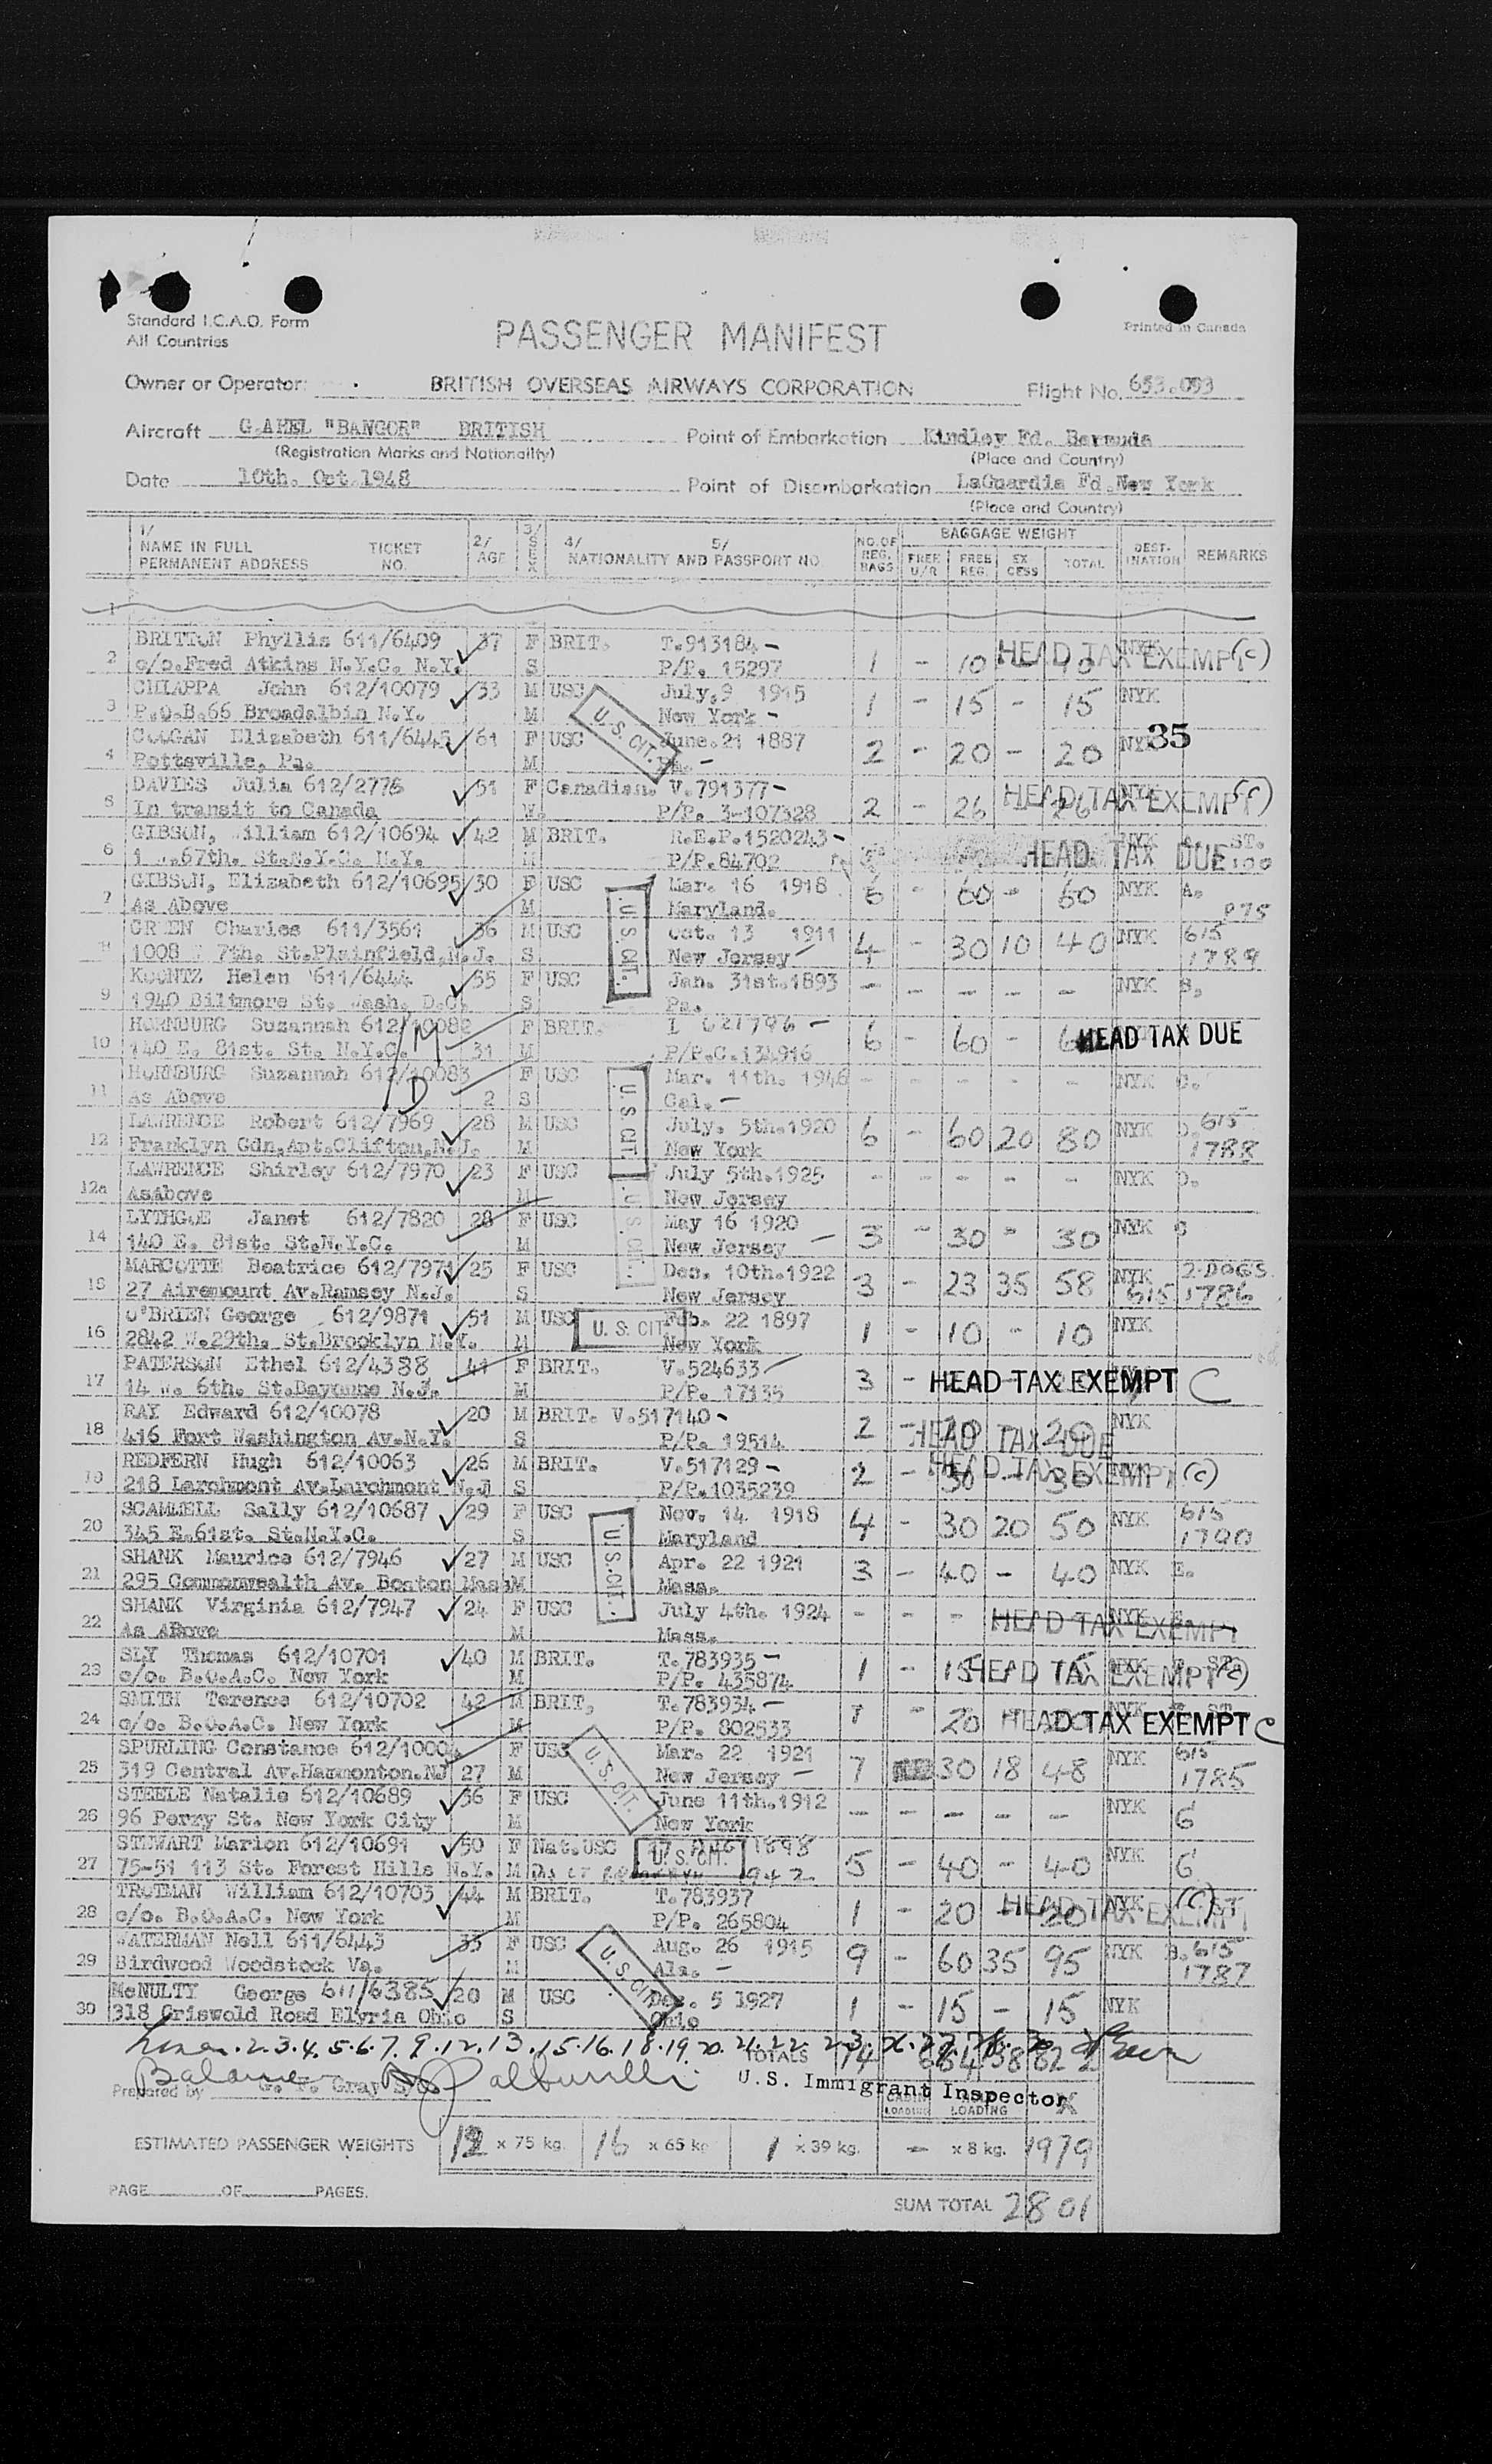 Standard I.C.A.O. Form
All Countries
PASSENGER MANIFEST
Printed in Canada
Owner or Operator: BRITISH OVERSEAS AIRWAYS CORPORATION Flight No. 653.093
Aircraft G.AHEL "BANGOR" BRITISH Point of Embarkation Kindley Fd. Bermuda
(Registration Marks and Nationality) (Place and Country)
Date 10th. Oct 1948 Point of Disembarkation LaGuardia Fd.New York
(Place and Country)
1/ NAME IN FULL PERMANENT ADDRESS TICKET NO. 2/ AGE 3/ SEX 4/ NATIONALITY AND 5/ PASSPORT NO. NO. OF REG. BAGS BAGGAGE WEIGHT FREE U/R FREE REG. EXCESS TOTAL DESTINATION REMARKS
1
BRITTON Phyllis 611/6409 37 F BRIT. T.913184- NYK
2 c/o.Fred Atkins N.Y.C. N.Y. S P/P. 15297 1 - 10 - 10 HEAD TAX EXEMPT (C)
CHIAPPA John 612/10079 33 M USC July.9 1915 NYK
3 P.O.B.66 Broadalbin N.Y. M New York - 1 - 15 - 15
U.S. CIT.
35
COOGAN Elizabeth 611/6445 61 F USC June.21 1887 NYK
4 Pottsville, Pa. M Pa. - 2 - 20 - 20
DAVIES Julia 612/2776 51 F Canadian. V.791377- NYK
5 In transit to Canada M. P/P. 3-107328 2 - 26 26 HEAD TAX EXEMPT (C)
GIBSON, William 612/10694 42 M BRIT. R.E.P.1520243- NYK ST.
6 1 W.67th. St.N.Y.C. N.Y. M P/P.84702 HEAD TAX DUE
GIBSON, Elizabeth 612/10695 30 F USC Mar. 16 1918 6 - 60 - 60 NYK A.
7 As Above M Maryland. 975
U.S. CIT.
GREEN Charles 611/3561 36 M USC Oct. 13 1911 4 - 30 10 40 NYK 615
8 1008 7th. St.Plainfield,N.J. S New Jersey 1789
KOONTZ Helen 611/6444 55 F USC Jan. 31st.1893 - - - - - NYK B.
9 1940 Biltmore St. Wash. D.C. S Pa.
HORNBURG Suzannah 612/10082 F BRIT. I 621796 - 6 - 60 - 60 HEAD TAX DUE
10 140 E. 81st. St. N.Y.C. 31 M P/P.C.134916
HORNBURG Suzannah 612/10083 F USC Mar. 11th. 1946 - - - - - NYK C.
11 As Above 2 S Cal. -
U.S. CIT.
LAWRENCE Robert 612/7969 28 M USC July. 5th.1920 6 - 60 20 80 NYK D. 615
12 Franklyn Gdn.Apt.Clifton,N.J. M New York 1788
LAWRENCE Shirley 612/7970 23 F USC July 5th.1925 - - - - - NYK D.
12a AsAbove M New Jersey
U.S. CIT.
LYTHGOE Janet 612/7820 28 F USC May 16 1920 3 - 30 - 30 NYK C
14 140 E. 81st. St.N.Y.C. M New Jersey -
MARCOTTE Beatrice 612/7971 25 F USC Dec. 10th.1922 3 - 23 35 58 NYK 2 DOGS
15 27 Airemount Av.Ramsey N.J. S New Jersey 615 1786
O'BRIEN George 612/9871 51 M USC Feb. 22 1897 1 - 10 - 10 NYK
16 2842 W.29th. St.Brooklyn N.Y. M New York
U.S. CIT
PATERSON Ethel 612/4388 41 F BRIT. V.524633
17 14 W. 6th. St.Bayonne N.J. M P/P. 17135 3 - HEAD TAX EXEMPT C
RAY Edward 612/10078 20 M BRIT. V.517140- 2 - 20 20 NYK
18 416 Fort Washington Av.N.Y. S P/P. 19514 HEAD TAX DUE
REDFERN Hugh 612/10063 26 M BRIT. V.517129- 2 - 30 - 30 HEAD TAX EXEMPT (C)
19 218 Larchmont Av.Larchmont N.J S P/P.1035239
SCAMMELL Sally 612/10687 29 F USC Nov. 14 1918 4 - 30 20 50 NYK 615
20 345 E.61st. St.N.Y.C. S Maryland 1790
U.S. CIT.
SHANK Maurice 612/7946 27 M USC Apr. 22 1921 3 - 40 - 40 NYK E.
21 295 Commonwealth Av. Boston Mass M Mass.
SHANK Virginia 612/7947 24 F USC July 4th. 1924 - - - HEAD TAX EXEMPT
22 As Above M Mass.
SLY Thomas 612/10701 40 M BRIT. T.783935- 1 - 15 HEAD TAX EXEMPT (C)
23 c/o. B.O.A.C. New York M P/P. 435874
SMITH Terence 612/10702 42 M BRIT, T.783934- 1 - 20 HEAD TAX EXEMPT C
24 c/o. B.O.A.C. New York M P/P. 802533
SPURLING Constance 612/1000 F USC Mar. 22 1921 7 30 18 48 NYK 615
25 319 Central Av.Hammonton.NJ 27 M New Jersey - 1785
U.S. CIT.
STEELE Natalie 612/10689 36 F USC June 11th.1912 - - - - - NYK
26 96 Perry St. New York City M New York G
STEWART Marion 612/10691 50 F Nat.USC 17 Aug 1898 5 - 40 - 40 NYK
27 75-51 113 St. Forest Hills N.Y. M 1942 G
U.S. CIT.
TROTMAN William 612/10703 44 M BRIT. T.783937 1 - 20 20 HEAD TAX EXEMPT (C) ST
28 c/o. B.O.A.C. New York M P/P. 265804
WATERMAN Nell 611/6443 33 F USC Aug. 26 1915 9 - 60 35 95 NYK B. 615
29 Birdwood Woodstock Va. M Ala. - 1787
U.S CIT.
McNULTY George 611/6385 20 M USC Dec. 5 1927 1 - 15 - 15 NYK
30 318 Griswold Road Elyria Ohio S Ohio
Lines .2.3.4.5.6.7.9.12.13.15.16.18.19.20.21.22.23.26.27.28.30
TOTALS 74 684 138 822
Balance
Prepared by G. F. Gray
U.S. Immigrant Inspector
CABIN LOADING HOLD LOADING X
ESTIMATED PASSENGER WEIGHTS 12 x 75 kg. 16 x 65 kg 1 x 39 kg. - x 8 kg. 1979
PAGE OF PAGES.
SUM TOTAL 2801